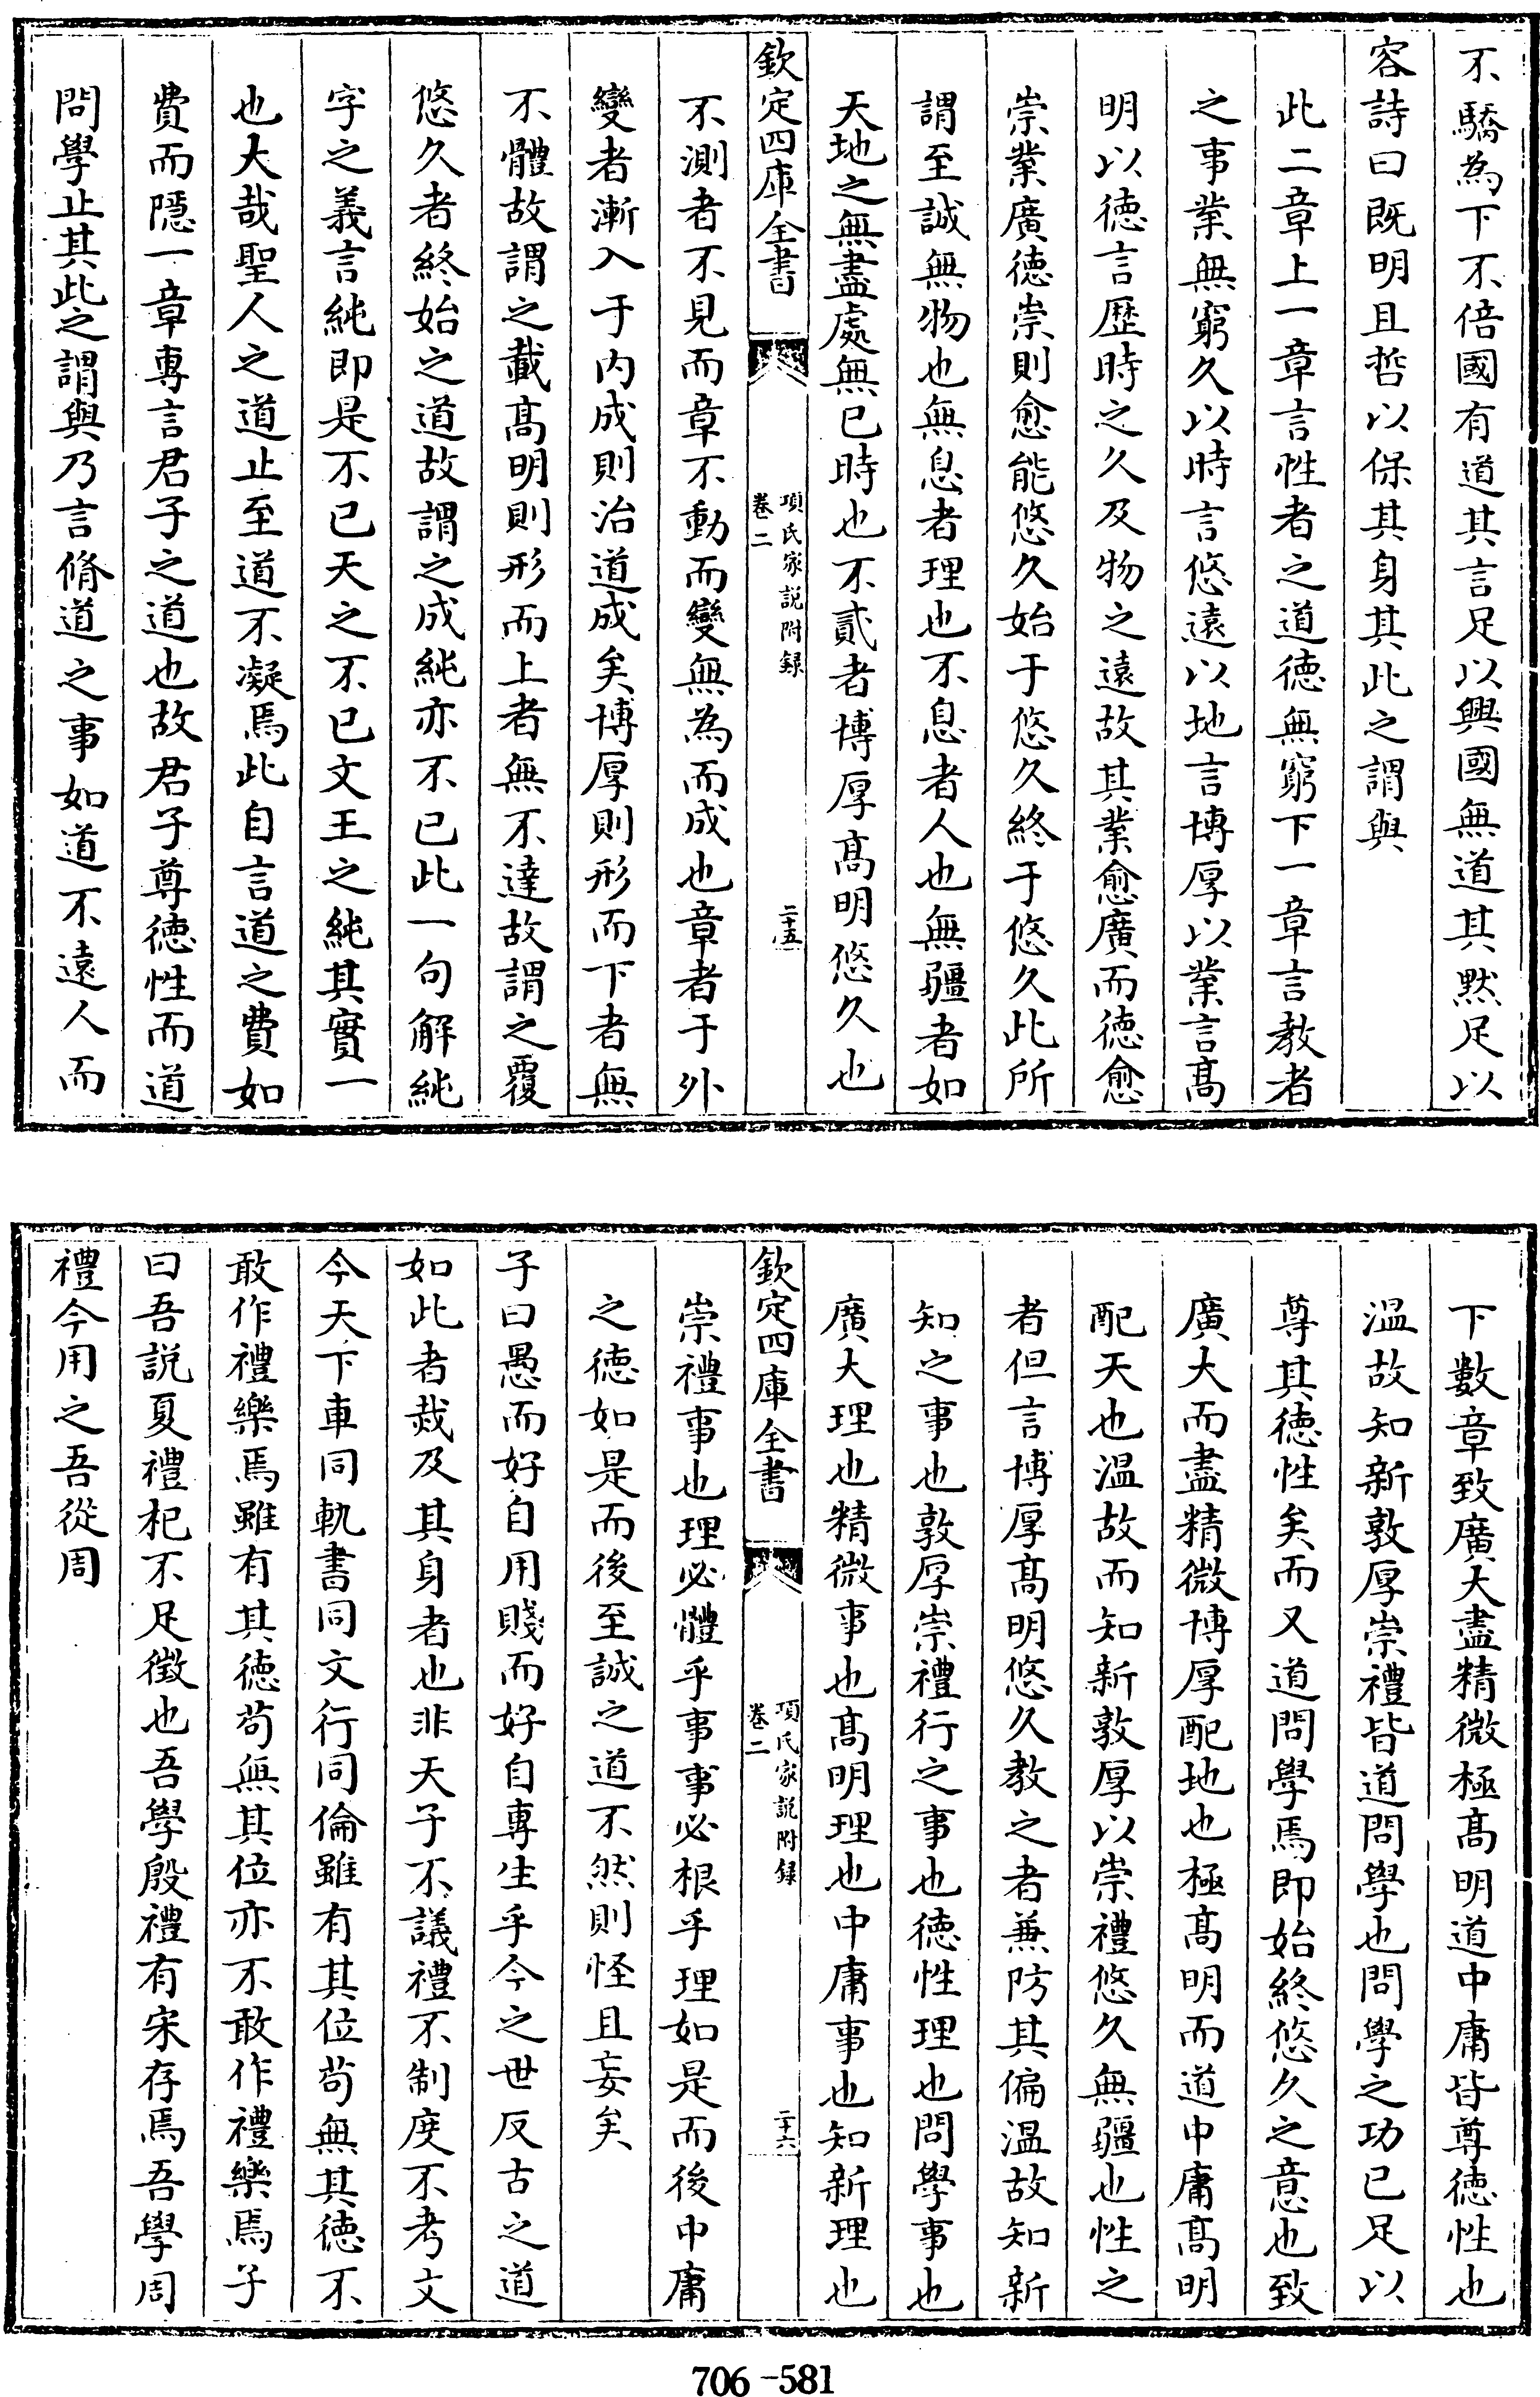 不驕為下不倍國有道其言足以興國無道其默足以
容詩曰既明且哲以保其身其此之謂與
此二章上一章言性者之道德無窮下一章言教者
之事業無窮久以時言悠遠以地言博厚以業言髙
明以徳言歴時之久及物之遠故其業愈廣而徳愈
崇業廣徳崇則愈能悠久始于悠久終于悠久此所
謂至誠無物也無息者理也不息者人也無疆者如
天地之無盡處無已時也不貳者博厚髙明悠久也
欽定四庫全書
項氏家説附録
卷二
二十五
不測者不見而章不動而變無為而成也章者于外
變者漸入于内成則治道成矣博厚則形而下者無
不體故謂之載髙明則形而上者無不達故謂之覆
悠久者終始之道故謂之成純亦不已此一句解純
字之義言純即是不已天之不已文王之純其實一
也大哉聖人之道止至道不凝焉此自言道之費如
費而隠一章專言君子之道也故君子尊徳性而道
問學止其此之謂與乃言脩道之事如道不遠人而
下數章致廣大盡精微極髙明道中庸皆尊徳性也
温故知新敦厚崇禮皆道問學也問學之功已足以
尊其徳性矣而又道問學焉即始終悠久之意也致
廣大而盡精微博厚配地也極髙明而道中庸髙明
配天也温故而知新敦厚以崇禮悠久無疆也性之
者但言博厚髙明悠久教之者兼防其偏温故知新
知之事也敦厚崇禮行之事也徳性理也問學事也
廣大理也精微事也髙明理也中庸事也知新理也
欽定四庫全書
項氏家説附録
卷二
二十六
崇禮事也理必體乎事事必根乎理如是而後中庸
之徳如是而後至誠之道不然則怪且妄矣
子曰愚而好自用賤而好自專生乎今之世反古之道
如此者烖及其身者也非天子不議禮不制度不考文
今天下車同軌書同文行同倫雖有其位苟無其徳不
敢作禮樂焉雖有其徳苟無其位亦不敢作禮樂焉子
曰吾説夏禮杞不足徴也吾學殷禮有宋存焉吾學周
禮今用之吾從周
706-581